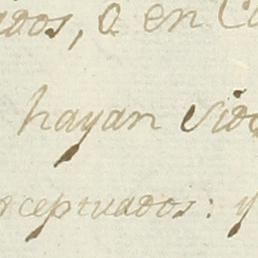 ados, o en Co
hayan sido
xceptuados: y